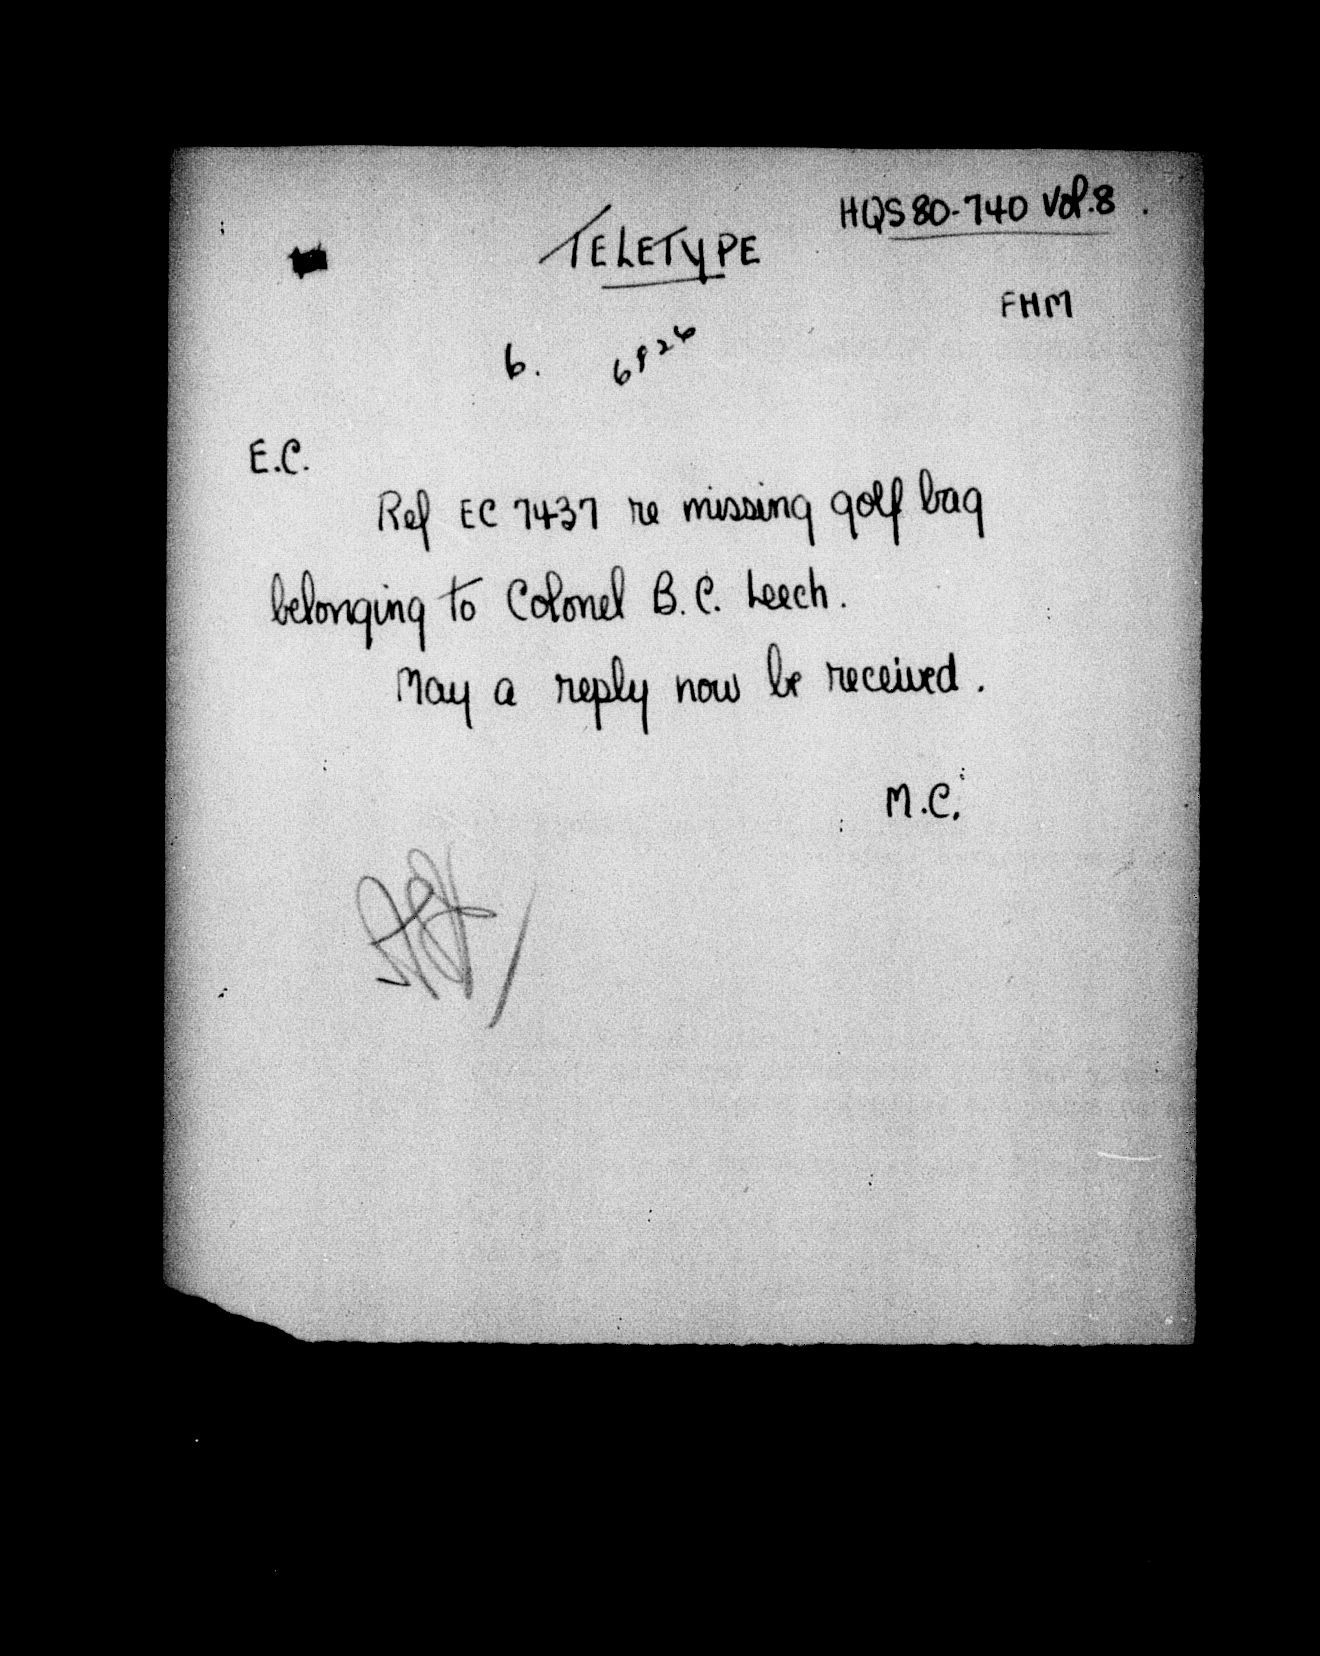 HQS 80-740 Vol. 8.
TELETYPE
FHM
6.
E.C.
Ref EC 7437 re missing golf bag
belonging to Colonel B.C. Leech.
May a reply now be received.
M.C.